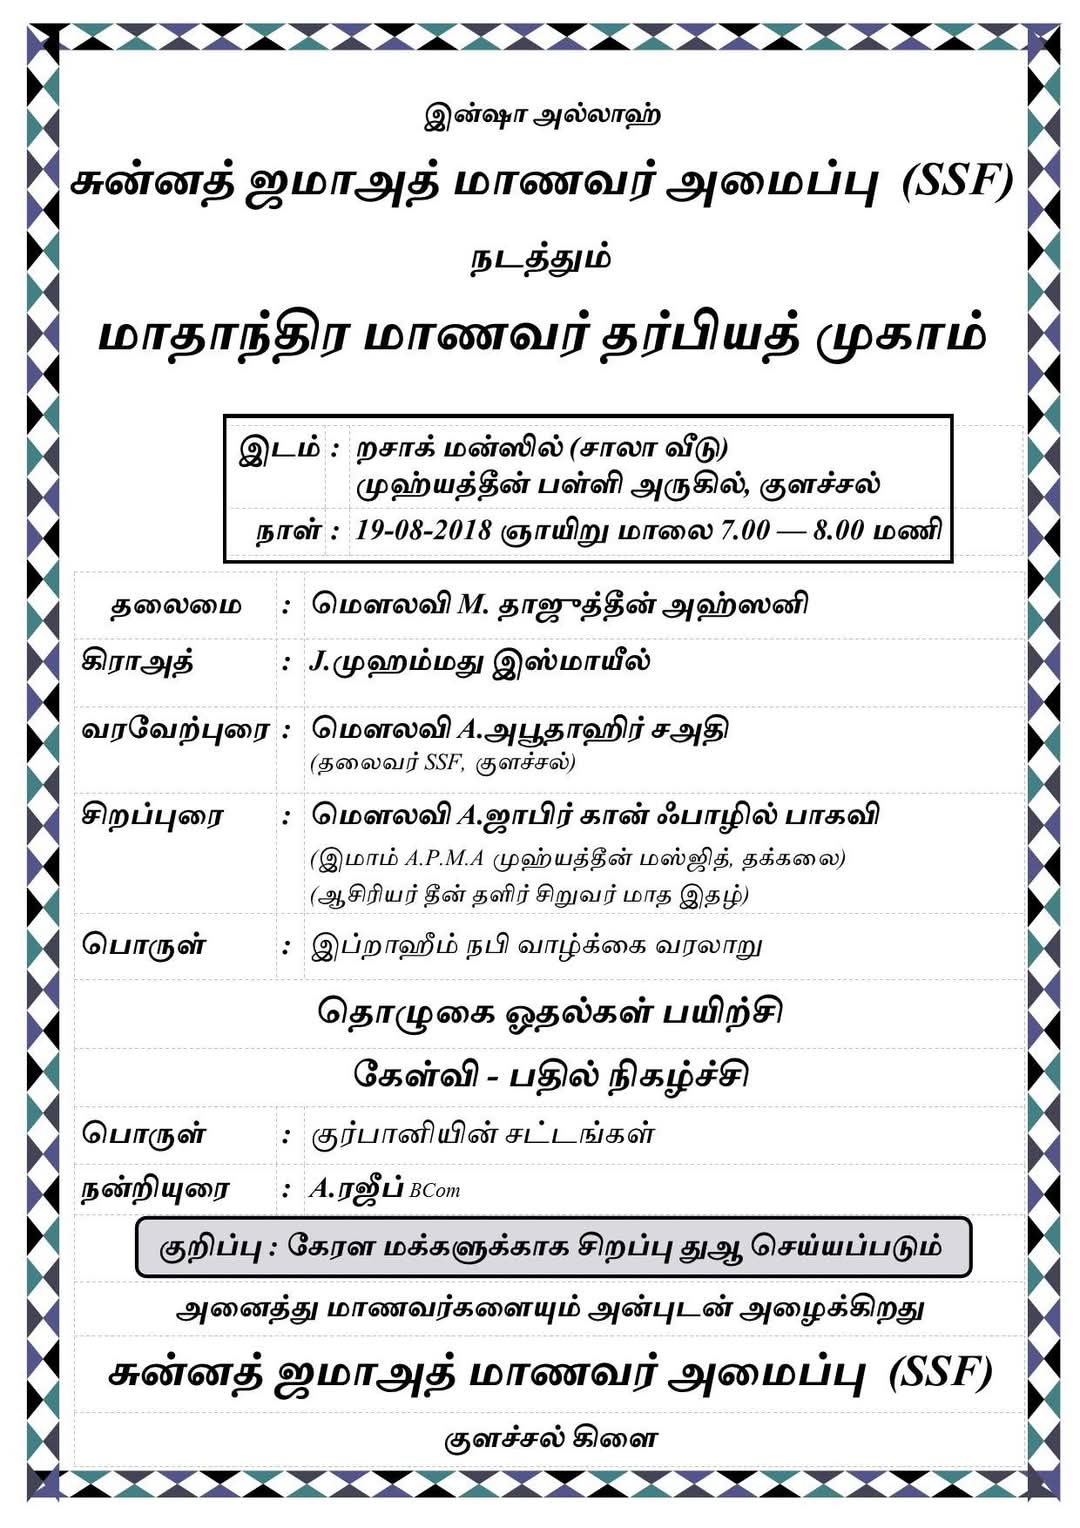 இன்ஷா அல்லாஹ்
சுன்னத் ஜமாஅத் மாணவர் அமைப்பு (SSF)
நடத்தும்
மாதாந்திர மாணவர் தர்பியத் முகாம்
இடம் : றசாக் மன்ஸில் (சாலா வீடு)
முஹ்யத்தீன் பள்ளி அருகில், குளச்சல்
நாள் : 19-08-2018 ஞாயிறு மாலை 7.00 — 8.00 மணி
தலைமை : மௌலவி M. தாஜுத்தீன் அஹ்ஸனி
கிராஅத் : J.முஹம்மது இஸ்மாயீல்
வரவேற்புரை : மௌலவி A.அபூதாஹிர் சஅதி
(தலைவர் SSF, குளச்சல்)
சிறப்புரை : மௌலவி A.ஜாபிர் கான் ஃபாழில் பாகவி
(இமாம் A.P.M.A முஹ்யத்தீன் மஸ்ஜித், தக்கலை)
(ஆசிரியர் தீன் தளிர் சிறுவர் மாத இதழ்)
பொருள் : இப்றாஹீம் நபி வாழ்க்கை வரலாறு
தொழுகை ஓதல்கள் பயிற்சி
கேள்வி - பதில் நிகழ்ச்சி
பொருள் : குர்பானியின் சட்டங்கள்
நன்றியுரை : A.ரஜீப் BCom
குறிப்பு : கேரள மக்களுக்காக சிறப்பு துஆ செய்யப்படும்
அனைத்து மாணவர்களையும் அன்புடன் அழைக்கிறது
சுன்னத் ஜமாஅத் மாணவர் அமைப்பு (SSF)
குளச்சல் கிளை